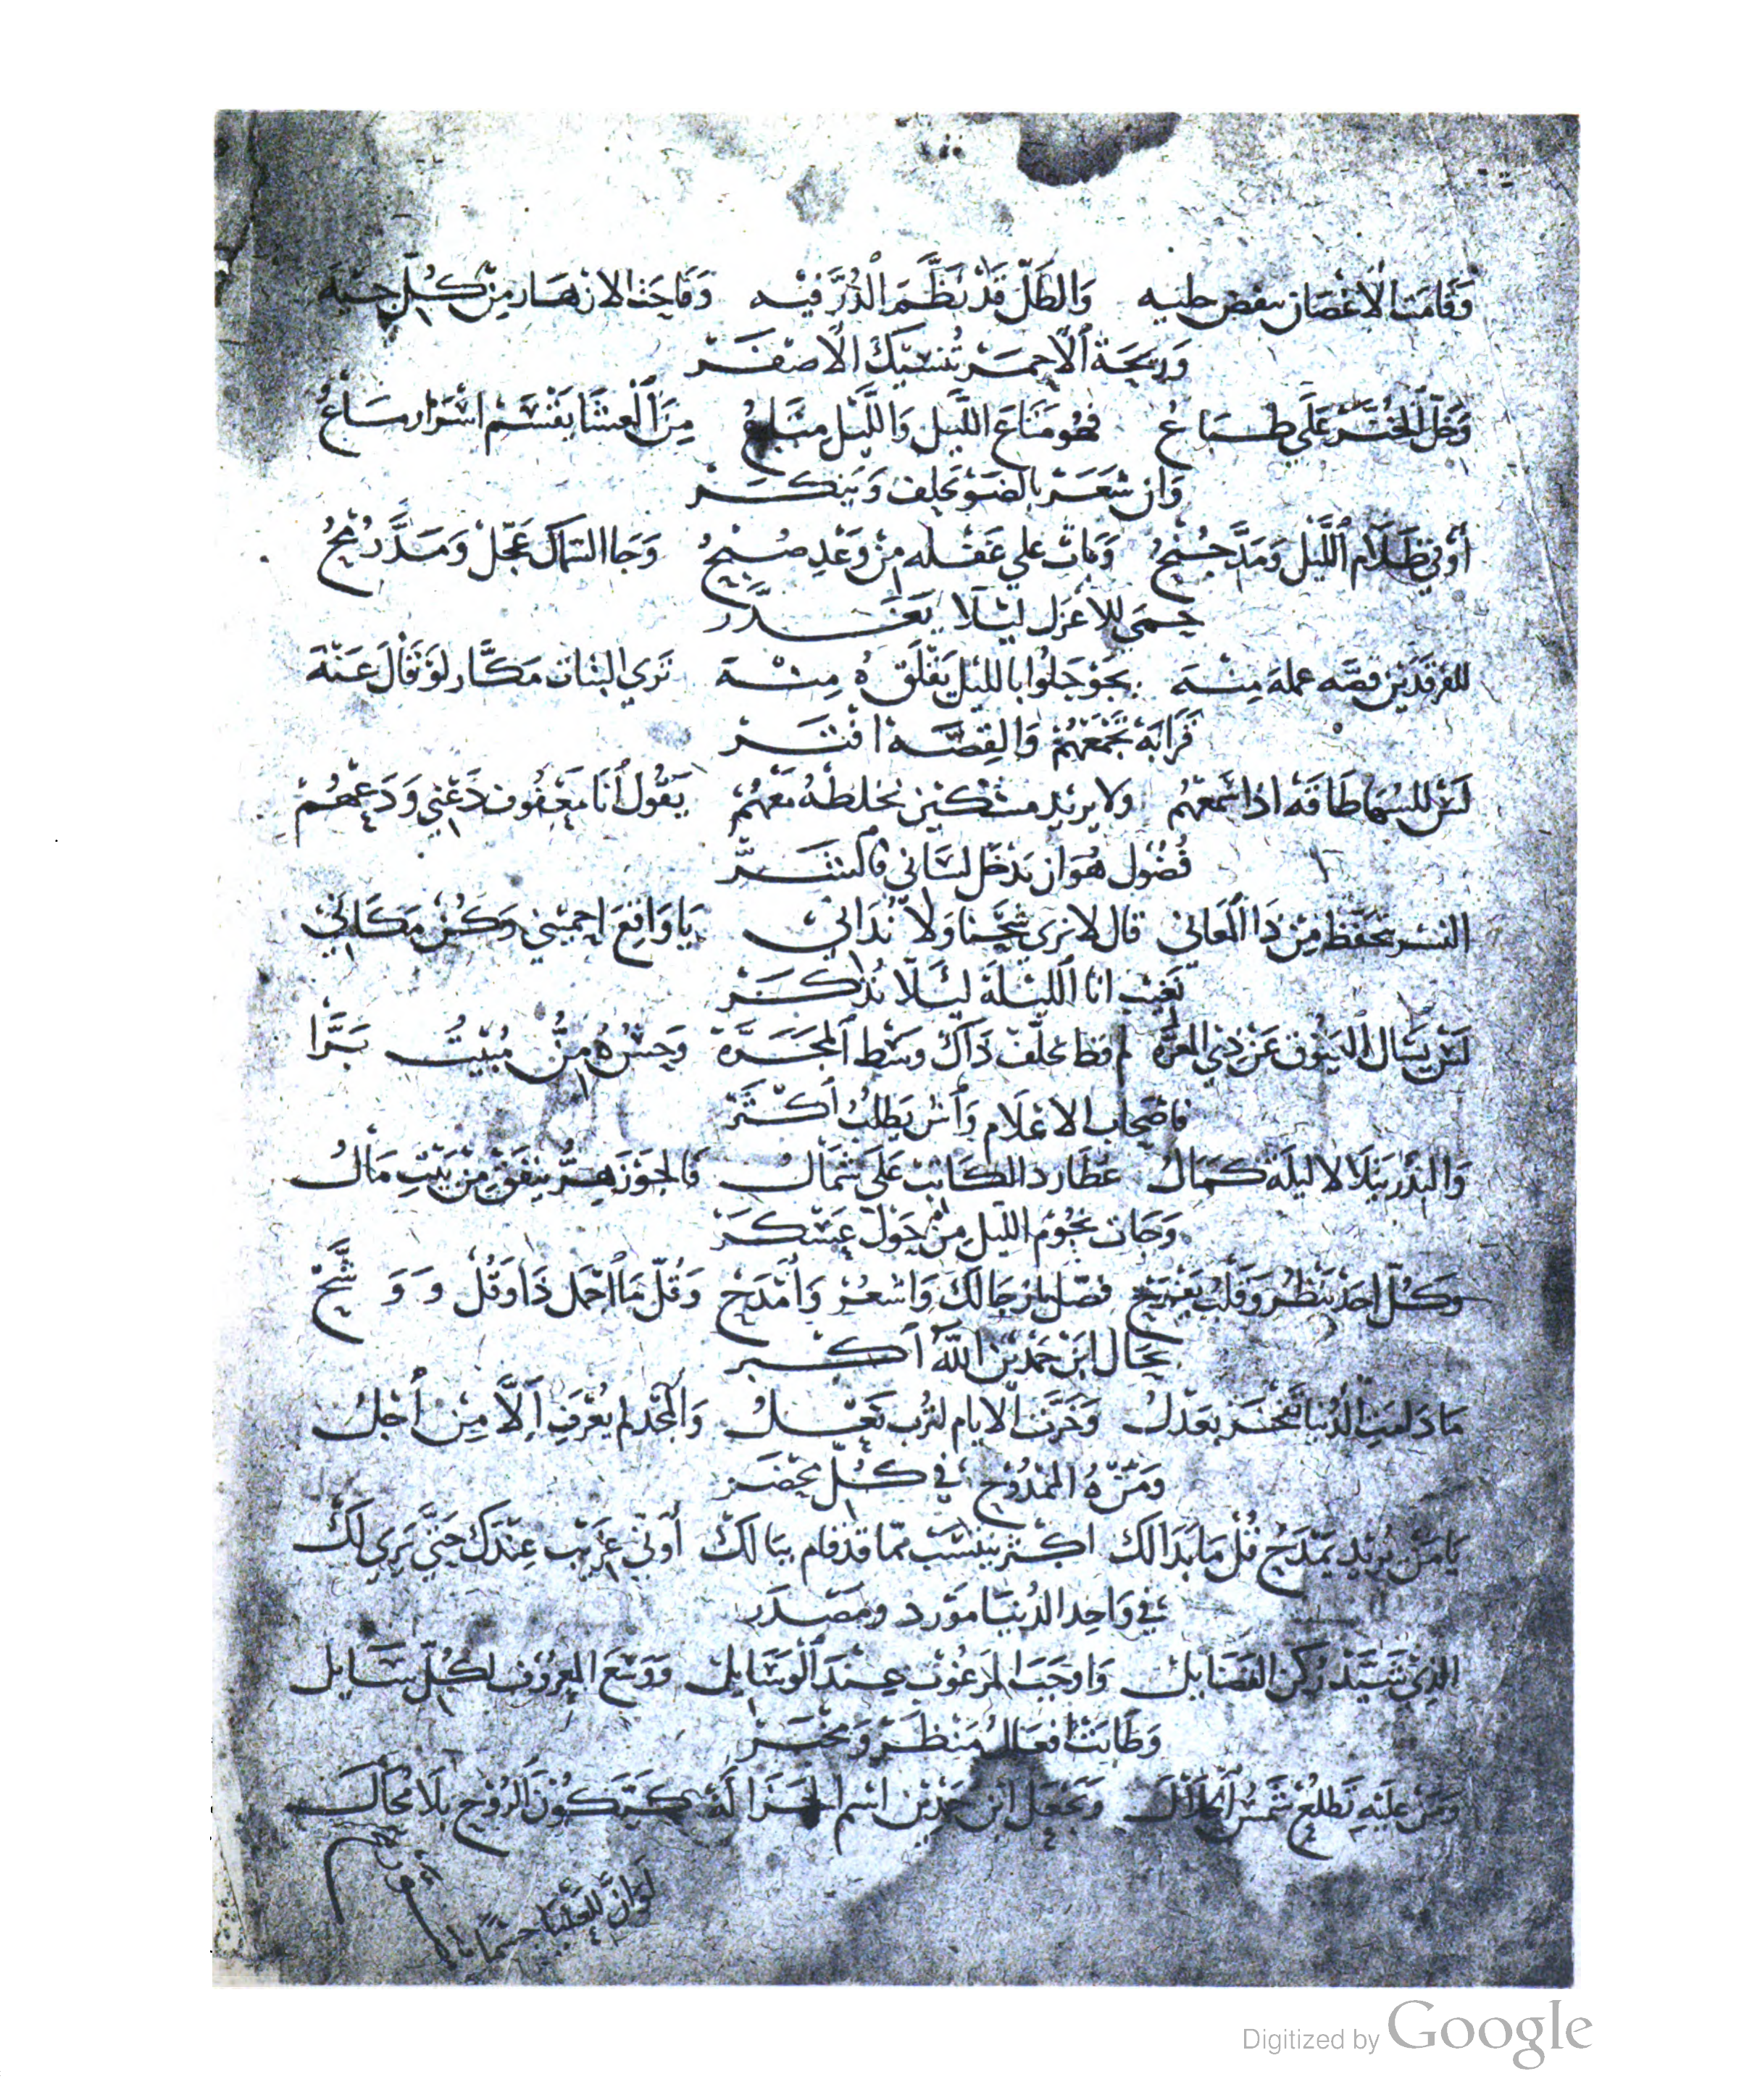 وَقَامَتِ الْاغْصَان ببعض حليه وَالطَّلّ قَدْ نَظَّمَ الدُّرَّ فيْه وَفَاحَتْ الازهَار مِنْ كُلّ جِيهَ
وَرِيحَة الْاحمَرْ تُنسيكَ الْاصفَرْ
وَخلّ عَلَى طبَاعُ فهُو مَتَاعَ اللَّيل وَاللَّيل مَتَاعُ مِنَ الْعشَا يقْسَم اسْرَار سَاعُ
وَان شعَرْ بالضَوْ يحلِف وَينكَرْ
أوْ في ظَلَام اللَّيل وَمَدَّ جُنْحُ وَبَاتْ علي غَفْله مِنْ وَعْدِ صُبْحُ وَجَا السّمَاك عَجّلْ وَمَدَّ رُمْحُ
حِمَى للأعْزَل ليْلَا يغَدَّر
للفرقدَيْن قصّه عمله مِنّه بجَوْ جَلوُا بالليْل يقْلَقُ مِنّه تَري البنَات مَكَّار لوْ قَالَ عَنّهَ
قَرَابَهْ تجْمَعْهُمْ وَالقِصَّهْ افتَرْ
لسْ للسُهَا طَاقَهْ اذَا تَمعْهُم ولا يريْد مسْكين يُخلطهُ مَعْهُمْ يَقُول أنَا مَعفُوف دَعْني وَدَعْهُمْ
فُضُول هُوَ ان نَدْخَل لسَاني
النسر يحفَظ مِنْ ذَا المَعَاني قال لا نري شيّنَا وَلَا نُدَاني يَا وَاقع احميْني وَكُنْ مَكَاني
نَغيب انَا اللّيْلَة ليْلَا نُذْكَرْ
لسْ يسَال العيّوق عَنْ ذي المعَرَّه لم قط يخلّف ذَاكْ وسْط المجَرَّهْ وَحسّ مِنْ مُبيْتُ بَرَّا
فاصحَاب الاعْلَام وَأسْ يطلُبْ أكْثَرْ
وَالبَدْر يَتلَالا ليلَة كمَالُ عطَارد الكَاتبْ عَلَي شمَالُ فَالجوْزَهِرُّ ينفَقْ مِنْ بَيْتِ مَالُ
وَجَات نجُوم الليْل مِنْ حَوْل عَسْكَرْ
وَكُلّ احَدْ ينظُر وَقلبُ يفْرَحْ فصّل يا رجَالكَ وَاشعُرْ وَامْدَحْ وَقُلْ مَا اجْمَل ذَا وَقُلْ وَ وَ شَّحْ
بحَال ابن حَمْدين اللهُ أكبر
مَا دَامَتِ الدُنيا تفْخَر بعَدْلُ وَخرَّت الايام لتُرب نَعْلُ وَالمَجْد لم يُعْرَف إلَّا مِن أجْلُ
وَمَنْزهُ الممْدُوح في كُلّ محضَر
يَا مَنْ يُريْد يمْدَح قُلْ مَا بَدَا لكْ اكثر ينسَب ممّا قَدْ قَام ببَالكْ أوْ في غريْب عِنْدَكْ حَتّي نَري لَكْ
في وَاحِد الدُنيَا مَوْرد ومَصْدَر
الذِي شَيَّدْ رُكن الفَضَايلْ وَاوجَبَ المَرغُوب عِندَ الوَسَايلْ وَوسّعَ المعرُوف لكُلّ سَايل
وَطَابَتْ افعَالُ مَنظَرْ وَمخْبَرْ
وَمَنْ عليْه تَطلعْ شَمسْ الجلَالَهْ وَيجْعَل ابن حَمدين اسْم الجزَالَهْ كيَّتْكُونْ الرُوح بلَا مُحَالَهْ
لَوْ انَّ للعُليَا جسمًا